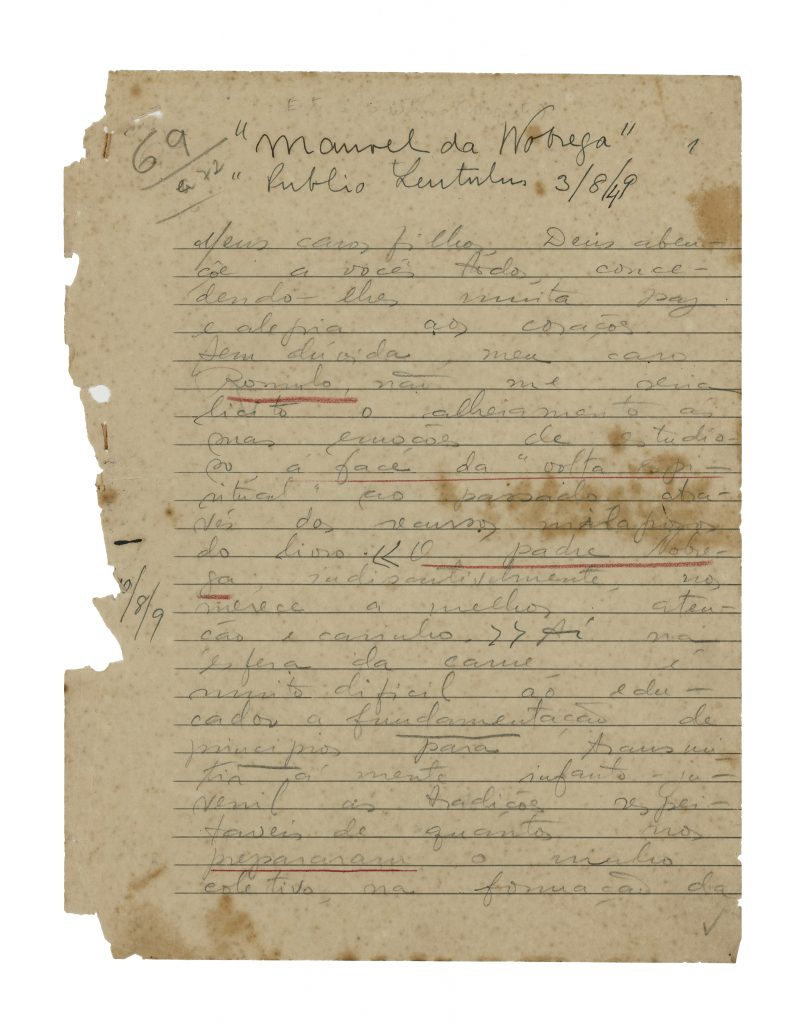 69
a 72
"Manoel da Nobrega" 1
" Publio Lentulus 3/8/49
Meus caros filhos, Deus aben-
çôe a vocês todos, conce-
dendo-lhes muita paz
e alegria aos corações.
Sem dúvida, meu caro
Romulo, não me seria
licito o alheiamento ás
suas emoções de estudio-
so á face da "volta espi-
ritual" ao passado atra-
vés dos recursos milagrosos
do livro. << O padre Nobre-
ga, indiscutivelmente, nos
merece a melhor aten-
ção e carinho. >> Aí na
esfera da carne é
muito dificil ao edu-
cador a fundamentação de
principios para transmi-
tir á mente infanto-ju-
venil as tradições respei-
taveis de quantos nos
prepararam o ninho
coletivo, na formação da
/8/9